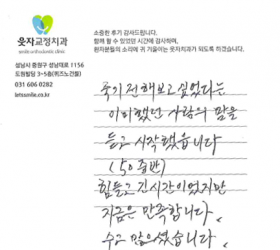 소중한 후기 감사드립니다.
함께 할 수 있었던 시간에 감사하며,
환자분들의 소리에 귀 기울이는 웃자치과가 되도록 하겠습니다.
웃자교정치과
smile orthodontic clinic
성남시 중원구 성남대로 1156
도원빌딩 3-5층(위즈노건물)
031 606 0282
letssmile.co.kr
죽기전 해보고 싶었다는
이야기했던 사람의 말을
듣고 시작했읍니다
(50 중반)
힘들고 긴시간이었지만
지금은 만족합니다.
수고 많으셨습니다